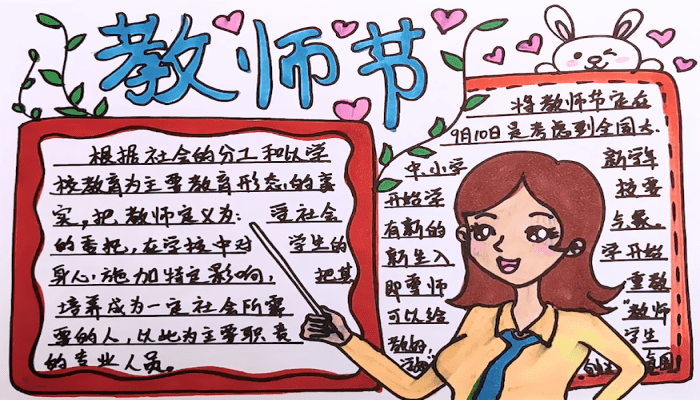 教师节
根据社会的分工和以学
校教育为主要教育形态的事
实,把教师定义为: 受社会
的委托,在学校中对 学生的
身心施加特定影响, 把其
培养成为一定社会所需
要的人,以此为主要职责
的专业人员。
将教师节定在
9月10日是考虑到全国大、
中、小学 新学年
开始,学 校要
有新的 气象。
新生入 学开始
即尊师 重教
可以给 "教师
教好, 学生